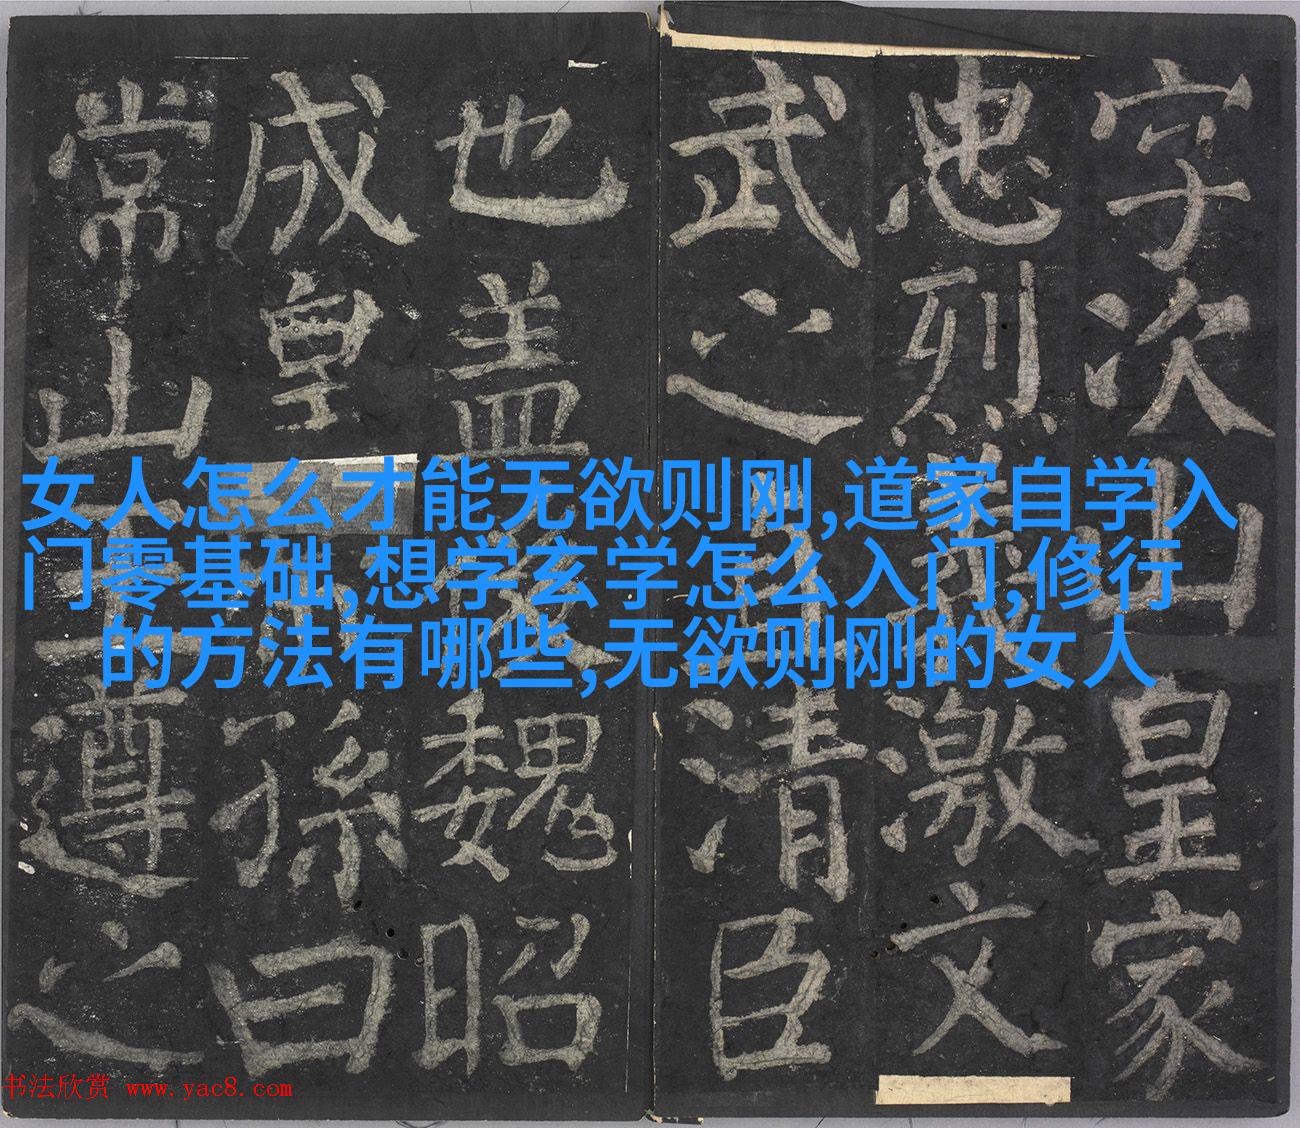 字次山皇家
忠烈義激文
武之清臣
也盖後魏昭
成皇孫曰
常山王遵之
女人怎么才能无欲则刚,道家自学入
门零基础,想学玄学怎么入门,修行
的方法有哪些,无欲则刚的女人
书法欣赏 www.yac8.com